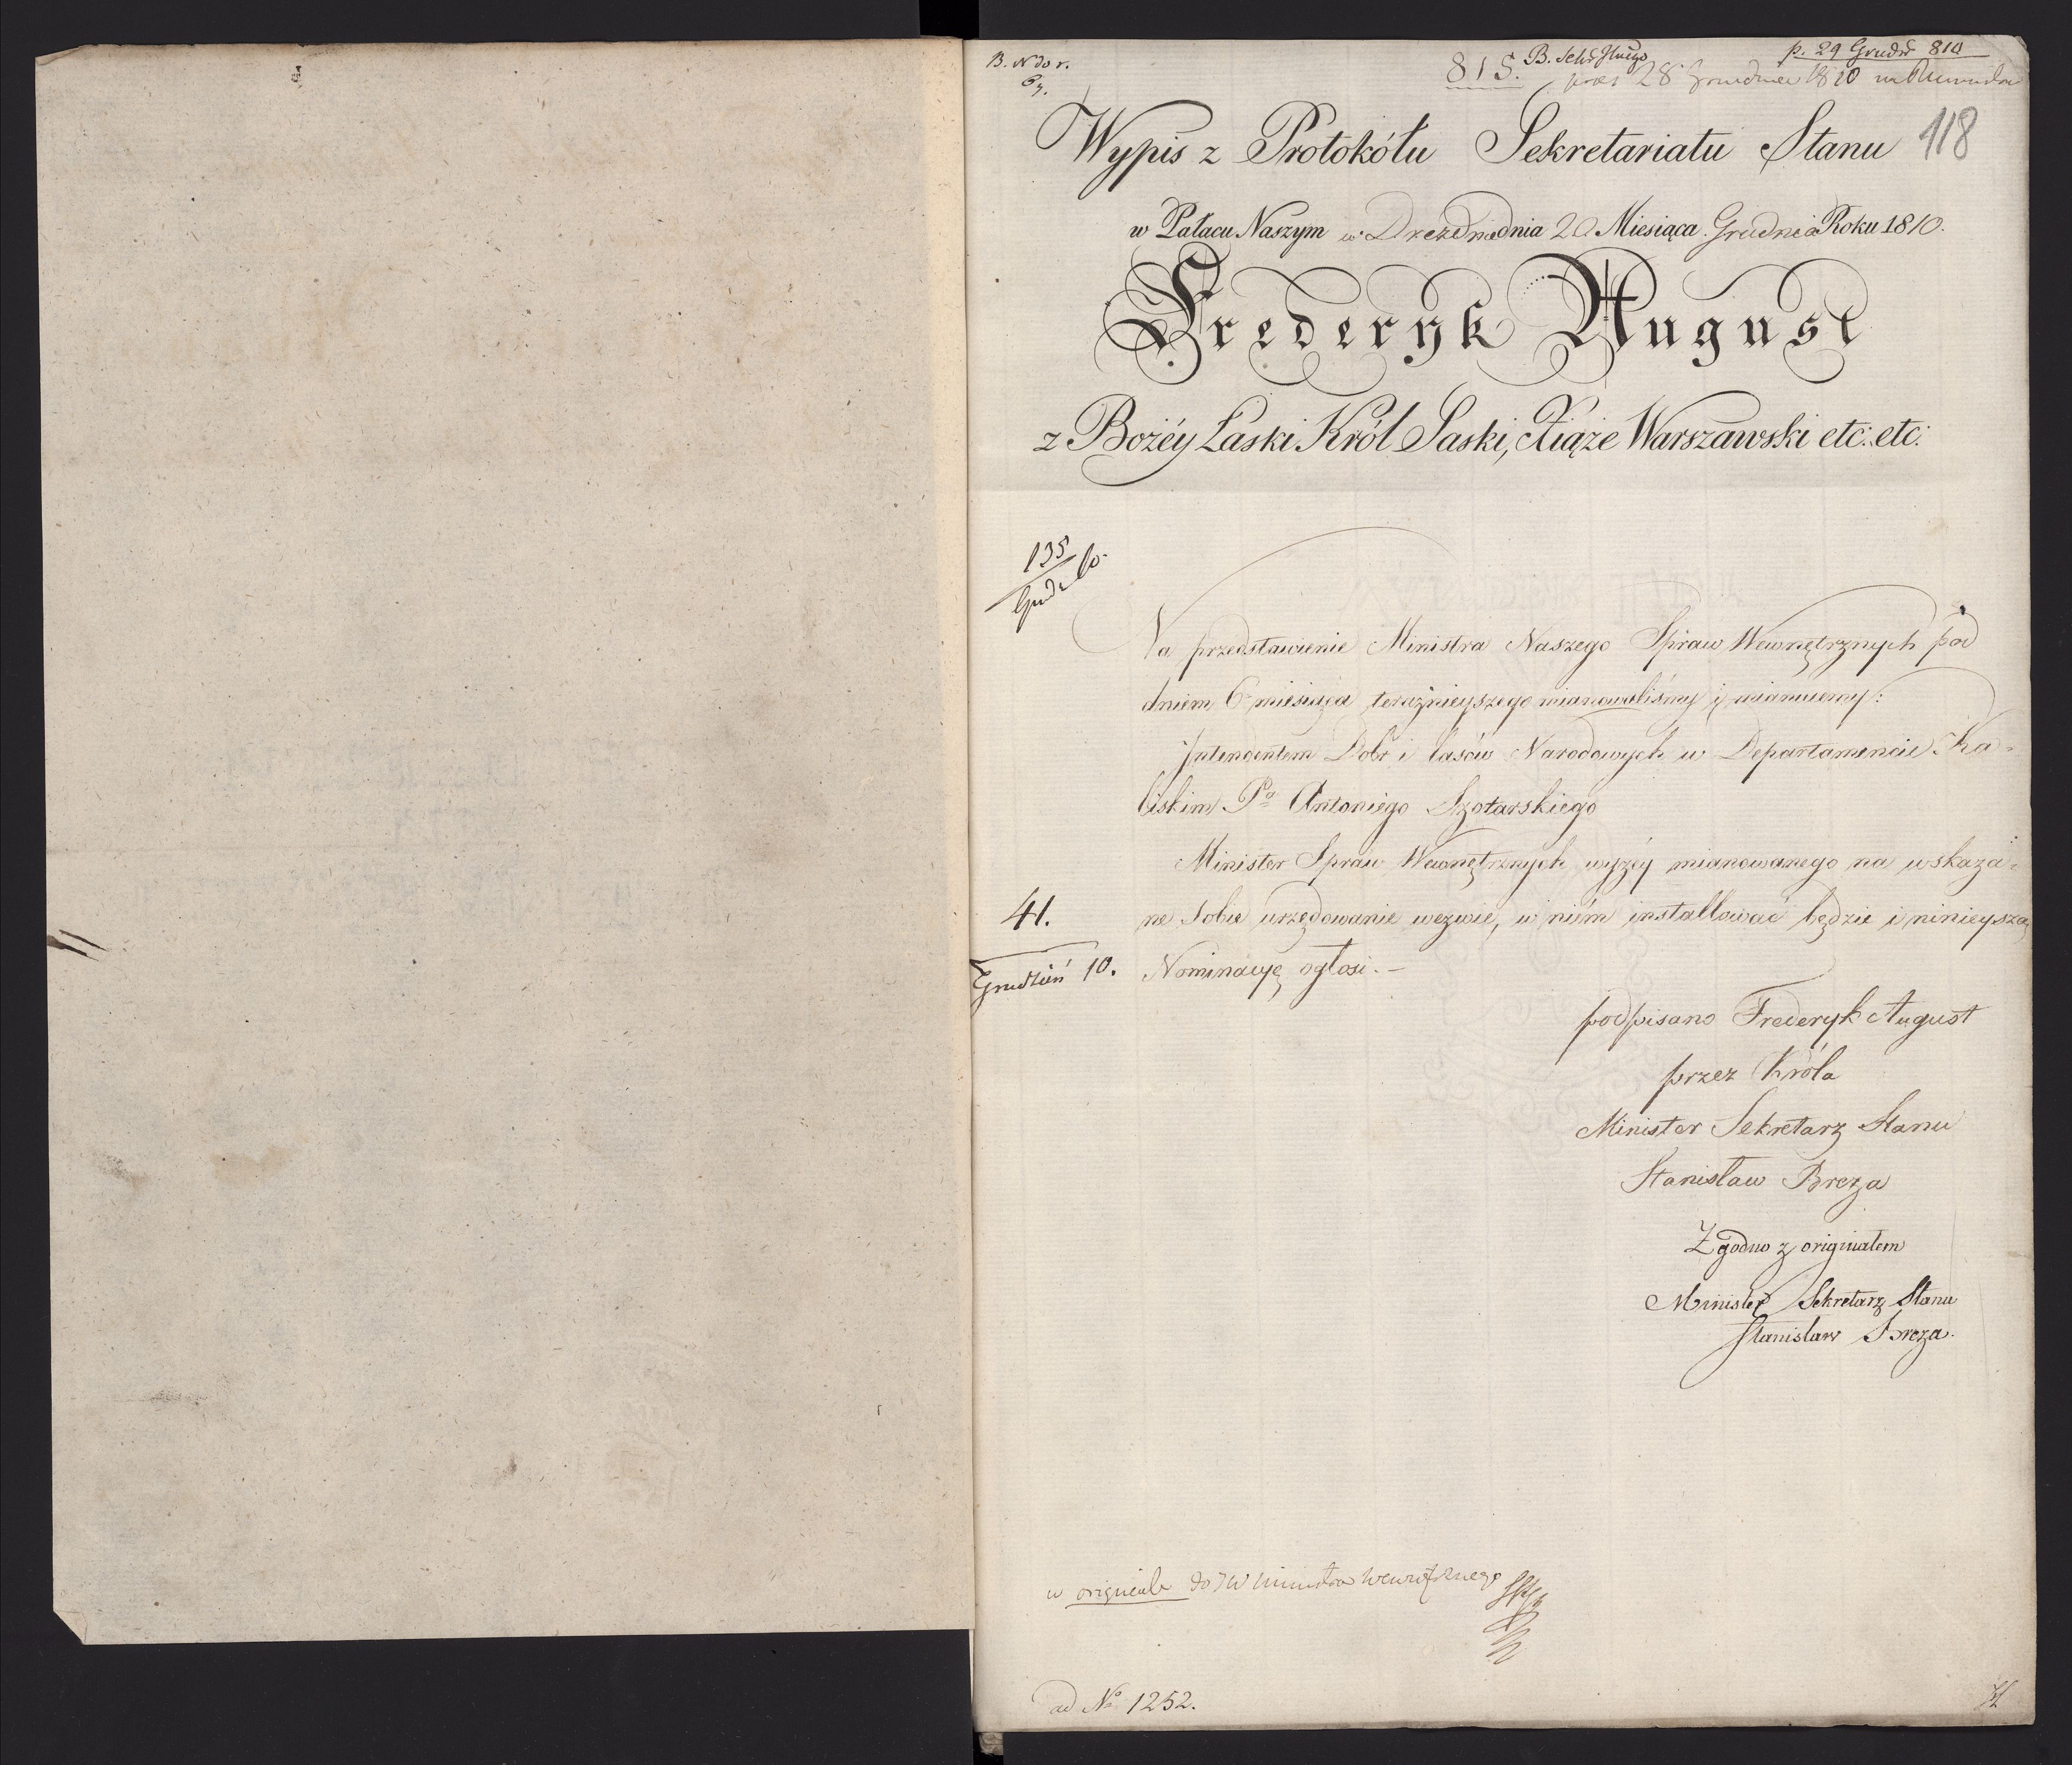 B. N do r.
815. B.
p. 29 Grudr 810
pras 28 Grudnia 1810
118
Wypis z Protokółu Sekretariatu Stanu
w Pałacu Naszym w Dreznie dnia 20 Miesiąca Grudnia Roku 1810.
Frederyk August
z Bożéy Łaski Król Saski, Xiąże Warszawski etc: etc:
135
Grud: 10.
Na przedstawienie Ministra Naszego Spraw Wewnętrznych pod
dniem 6 miesiąca teraźnieyszego mianowaliśmy i mianuiemy:
Intendentem Dobr i lasów Narodowych w Departamencie Ka-
liskim Pa Antoniego Szołarskiego
Minister Spraw Wewnętrznych wyżéy mianowanego na wskaza-
41.
ne sobie urzędowanie wezwie, w niém installować będzie i ninieyszą
Grudzień 10.
Nominacyę ogłosi.–
podpisano Frederyk August
przez Króla
Minister Sekretarz Stanu
Stanisław Breza
Zgodno z originałem
Minister Sekretarz Stanu
Stanisław Breza.
w originale do JW Ministra Wewnętrznego
ad No 1252.